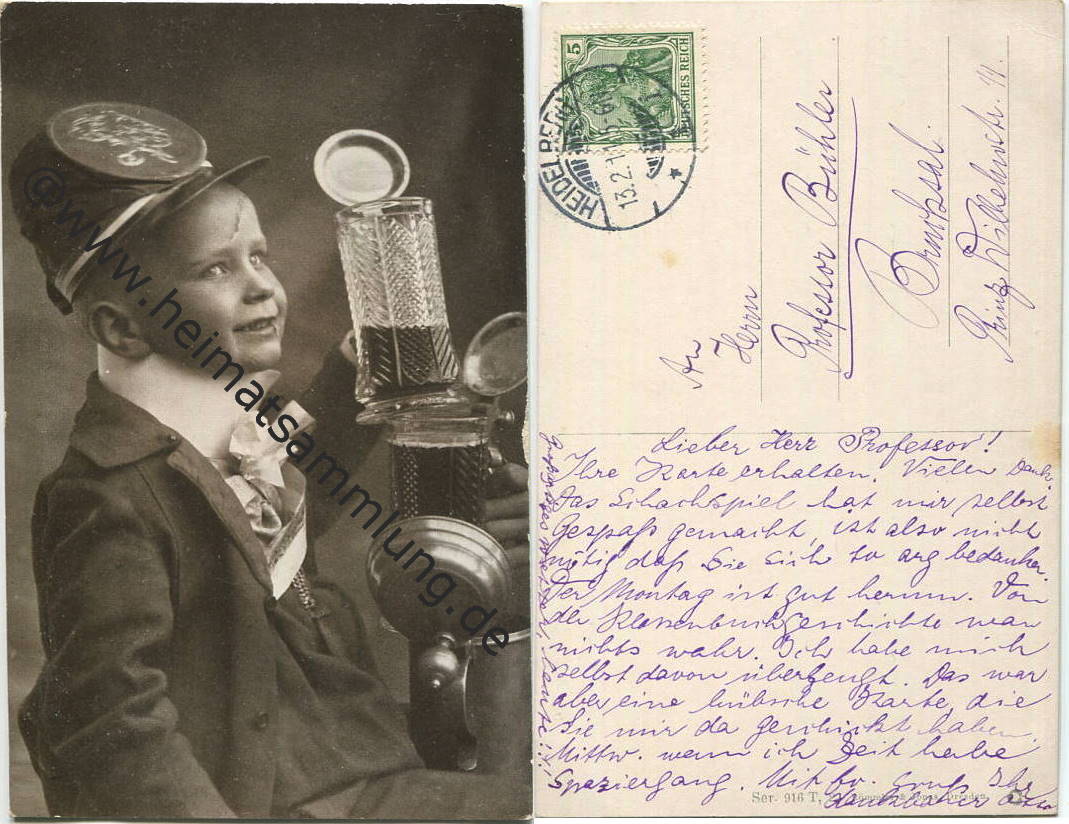 © www.heimatsammlung.de
5
DEUTSCHES REICH
HEIDELBERG
13.2.1
An
Herrn
Professor Bühler
Bruchsal.
Prinz Wilhelmstr. 14.
Lieber Herr Professor!
Ihre Karte erhalten. Vielen Dank.
Das Schachspiel hat mir selbst
Gespaß gemacht, ist also nicht
nötig daß Sie sich so arg bedanken.
Der Montag ist gut herum. Von
der Klassenbuchgeschichte war
nichts wahr. Ich habe mich
selbst davon überzeugt. Das war
aber eine hübsche Karte, die
Sie mir da geschickt haben.
Mittw. wenn ich Zeit habe
Spaziergang. Mit fr. Gruß Ihr
dankbarer
Ser. 916 T, Dresden